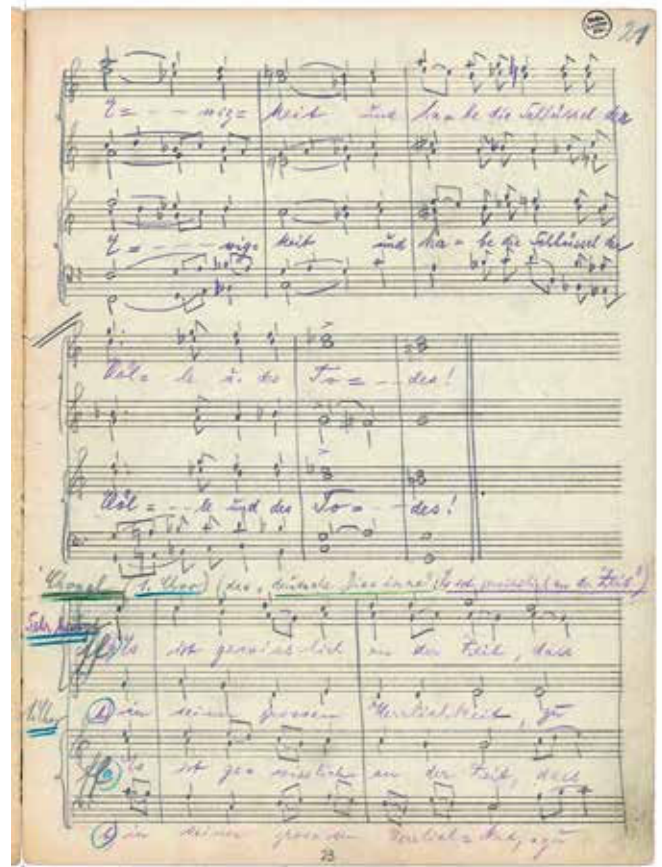 21
E= - - wig= keit und ha=be die Schlüssel der
E= - - - wig= keit und ha=be die Schlüssel der
Höl= le u. des To= - - des!
Höl= - - le und des To= - - des!
Choral (1. Chor) (das „deutsche Dies irae“: Es ist gewisslich an der Zeit“)
ff a Es ist gewisslich an der Zeit, dass
1. Chor
b in seiner grossen Herrlichkeit, zu
ff a Es ist ge= wisslich an der Zeit, dass
b in seiner grossen Herrlich=keit, zu
23